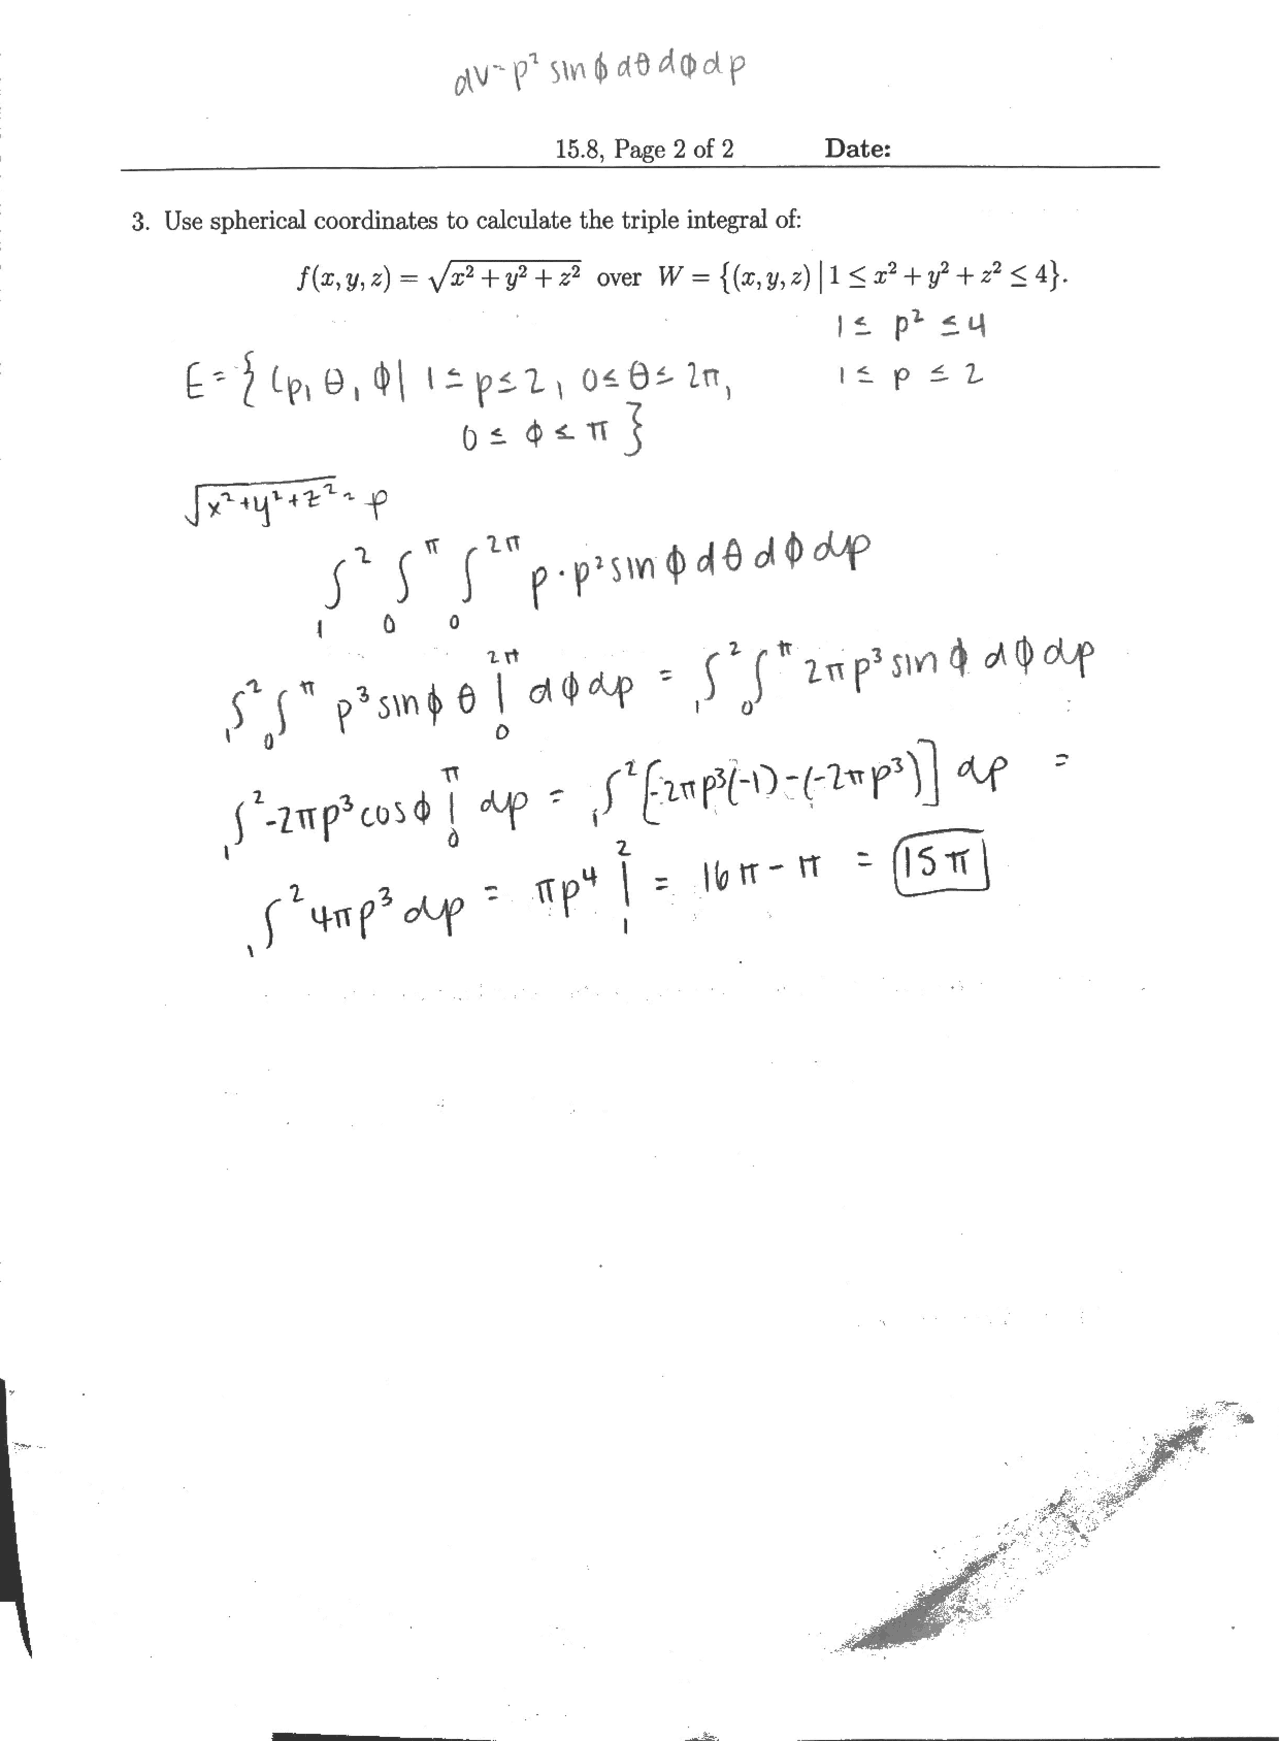 dV = p² sin ϕ dθ dϕ dp
15.8, Page 2 of 2 Date:
3. Use spherical coordinates to calculate the triple integral of:
f(x, y, z) = √(x² + y² + z²) over W = {(x, y, z) | 1 ≤ x² + y² + z² ≤ 4}.
1 ≤ p² ≤ 4
E = { (p, θ, ϕ | 1 ≤ p ≤ 2, 0 ≤ θ ≤ 2π, 1 ≤ p ≤ 2
0 ≤ ϕ ≤ π }
√(x²+y²+z²) = p
∫₁² ∫₀^π ∫₀^2π p · p² sin ϕ dθ dϕ dp
∫₁² ∫₀^π p³ sin ϕ θ |₀^2π dϕ dp = ∫₁² ∫₀^π 2π p³ sin ϕ dϕ dp
∫₁² -2πp³ cos ϕ |₀^π dp = ∫₁² [-2πp³(-1) - (-2πp³)] dp =
∫₁² 4πp³ dp = πp⁴ |₁² = 16π - π = 15π